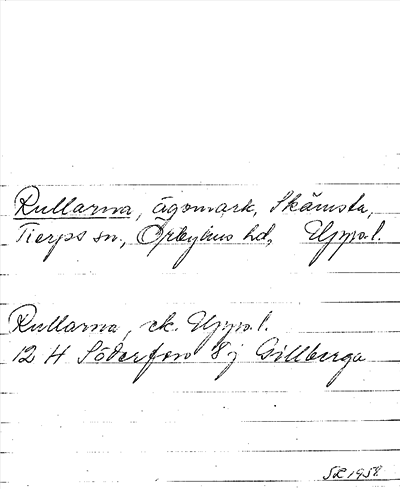 Rullarna, ägomark, Skämsta,
Tierps sn., Örbyhus hd, Uppl.
Rullarna, ek. Uppl.
12 H Söderfors 8 j Gillberga
SL 1958